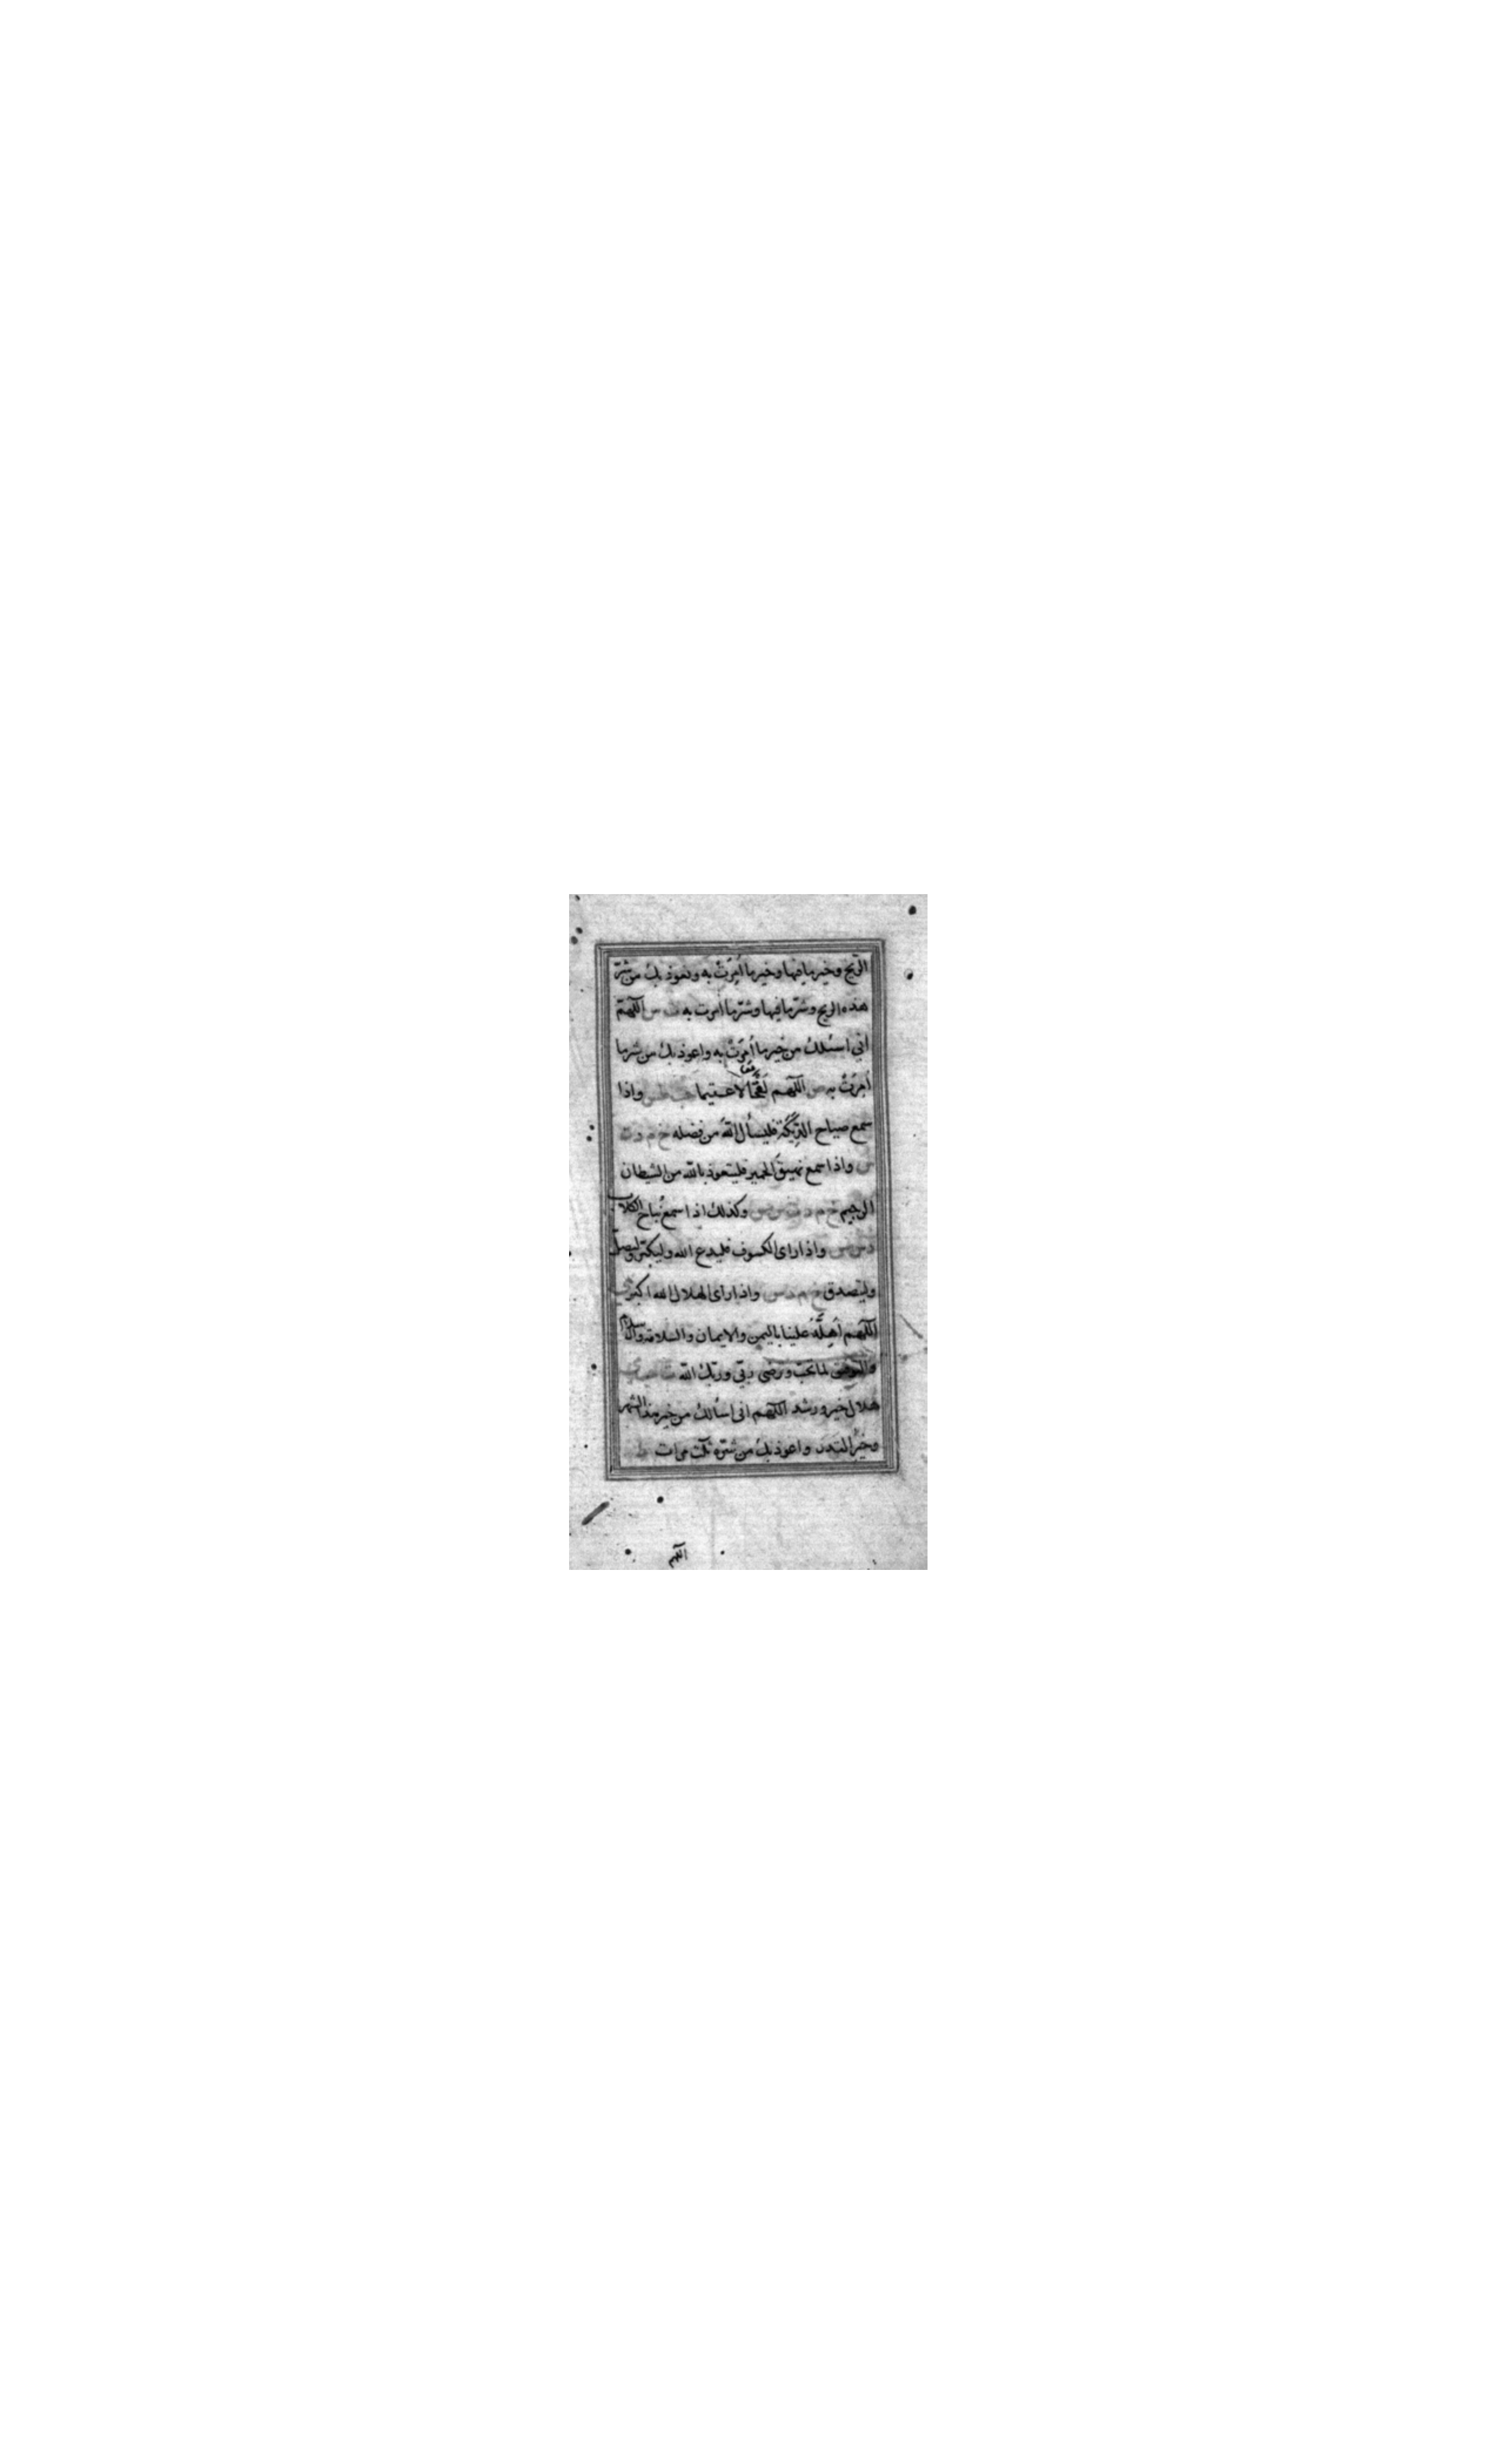 الريح وخير ما فيها وخير ما أُمِرَتْ به ونعوذ بك من شرّ
هذه الريح وشرّ ما فيها وشرّ ما امرت به ت س اللّهمّ
اني اسئلك من خير ما أُمِرَتْ به واعوذ بك من شر ما
أُمِرَتْ به ص اللّهم لَقْحًا لا عقيما حب طس واذا
سمع صياح الدِّيَكَة فليسأل اللّٰه من فضله خ م د ت
س واذا سمع نهيق الحمير فليتعوذ بالله من الشيطان
الرجيم خ م د ت س مس وكذلك اذا سمع نُباح الكلاب
د س مس واذا راى الكسوف فليدع الله وليكبّر وليصلّ
وليتصدق خ م د س واذا راى الهلال الله اكبر مى
اللّهم أَهِلَّهُ علينا باليمن والايمان والسلامة والاسلام
والتوفيق لما تحبّ وترضى ربّي وربّك اللّه ت حب مى
هلال خير ورشد اللّهم انى اسألك من خير هذا الشهر
وخير القدر واعوذ بك من شرّه ثلث مرات ط
اللّهم